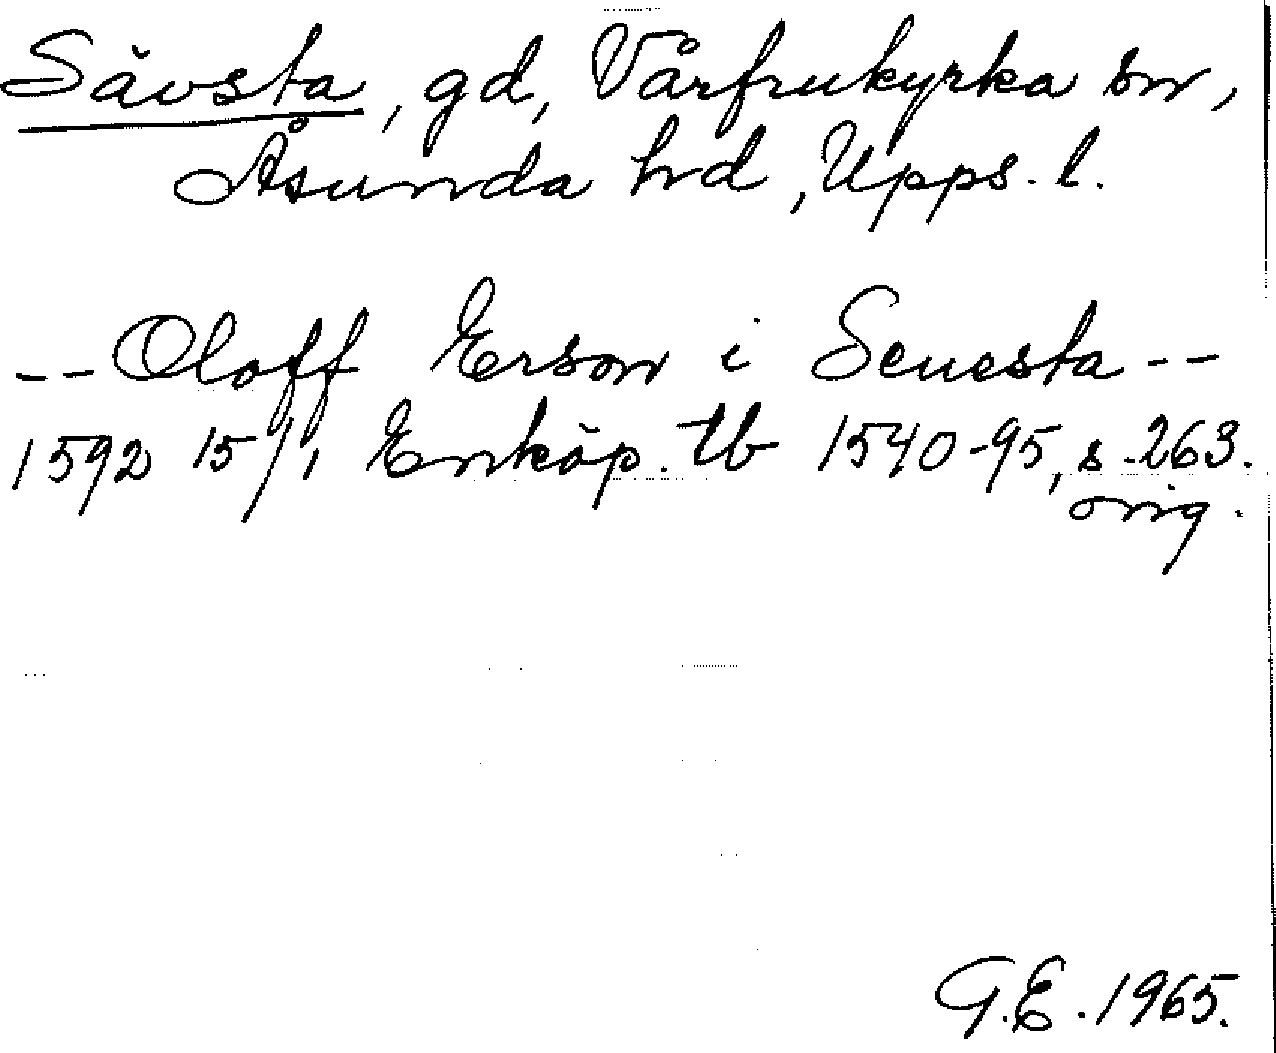 Sävsta, gd, Vårfrukyrka sn,
Åsunda hd, Upps. l.
-- Oloff Erson i Seuesta --
1592 15/1 Enköp. tb 1540-95, s. 263.
orig.
G.E. 1965.